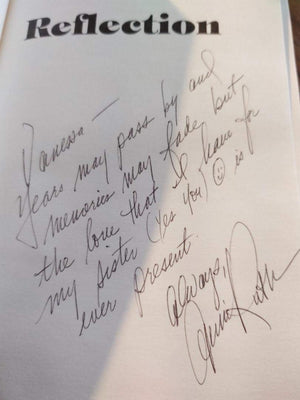 Reflection
Vanessa —
Years may pass by and
memories may fade, but
the love that I have for
my sister (yes you) ☺ is
ever present.
Always,
Ruth